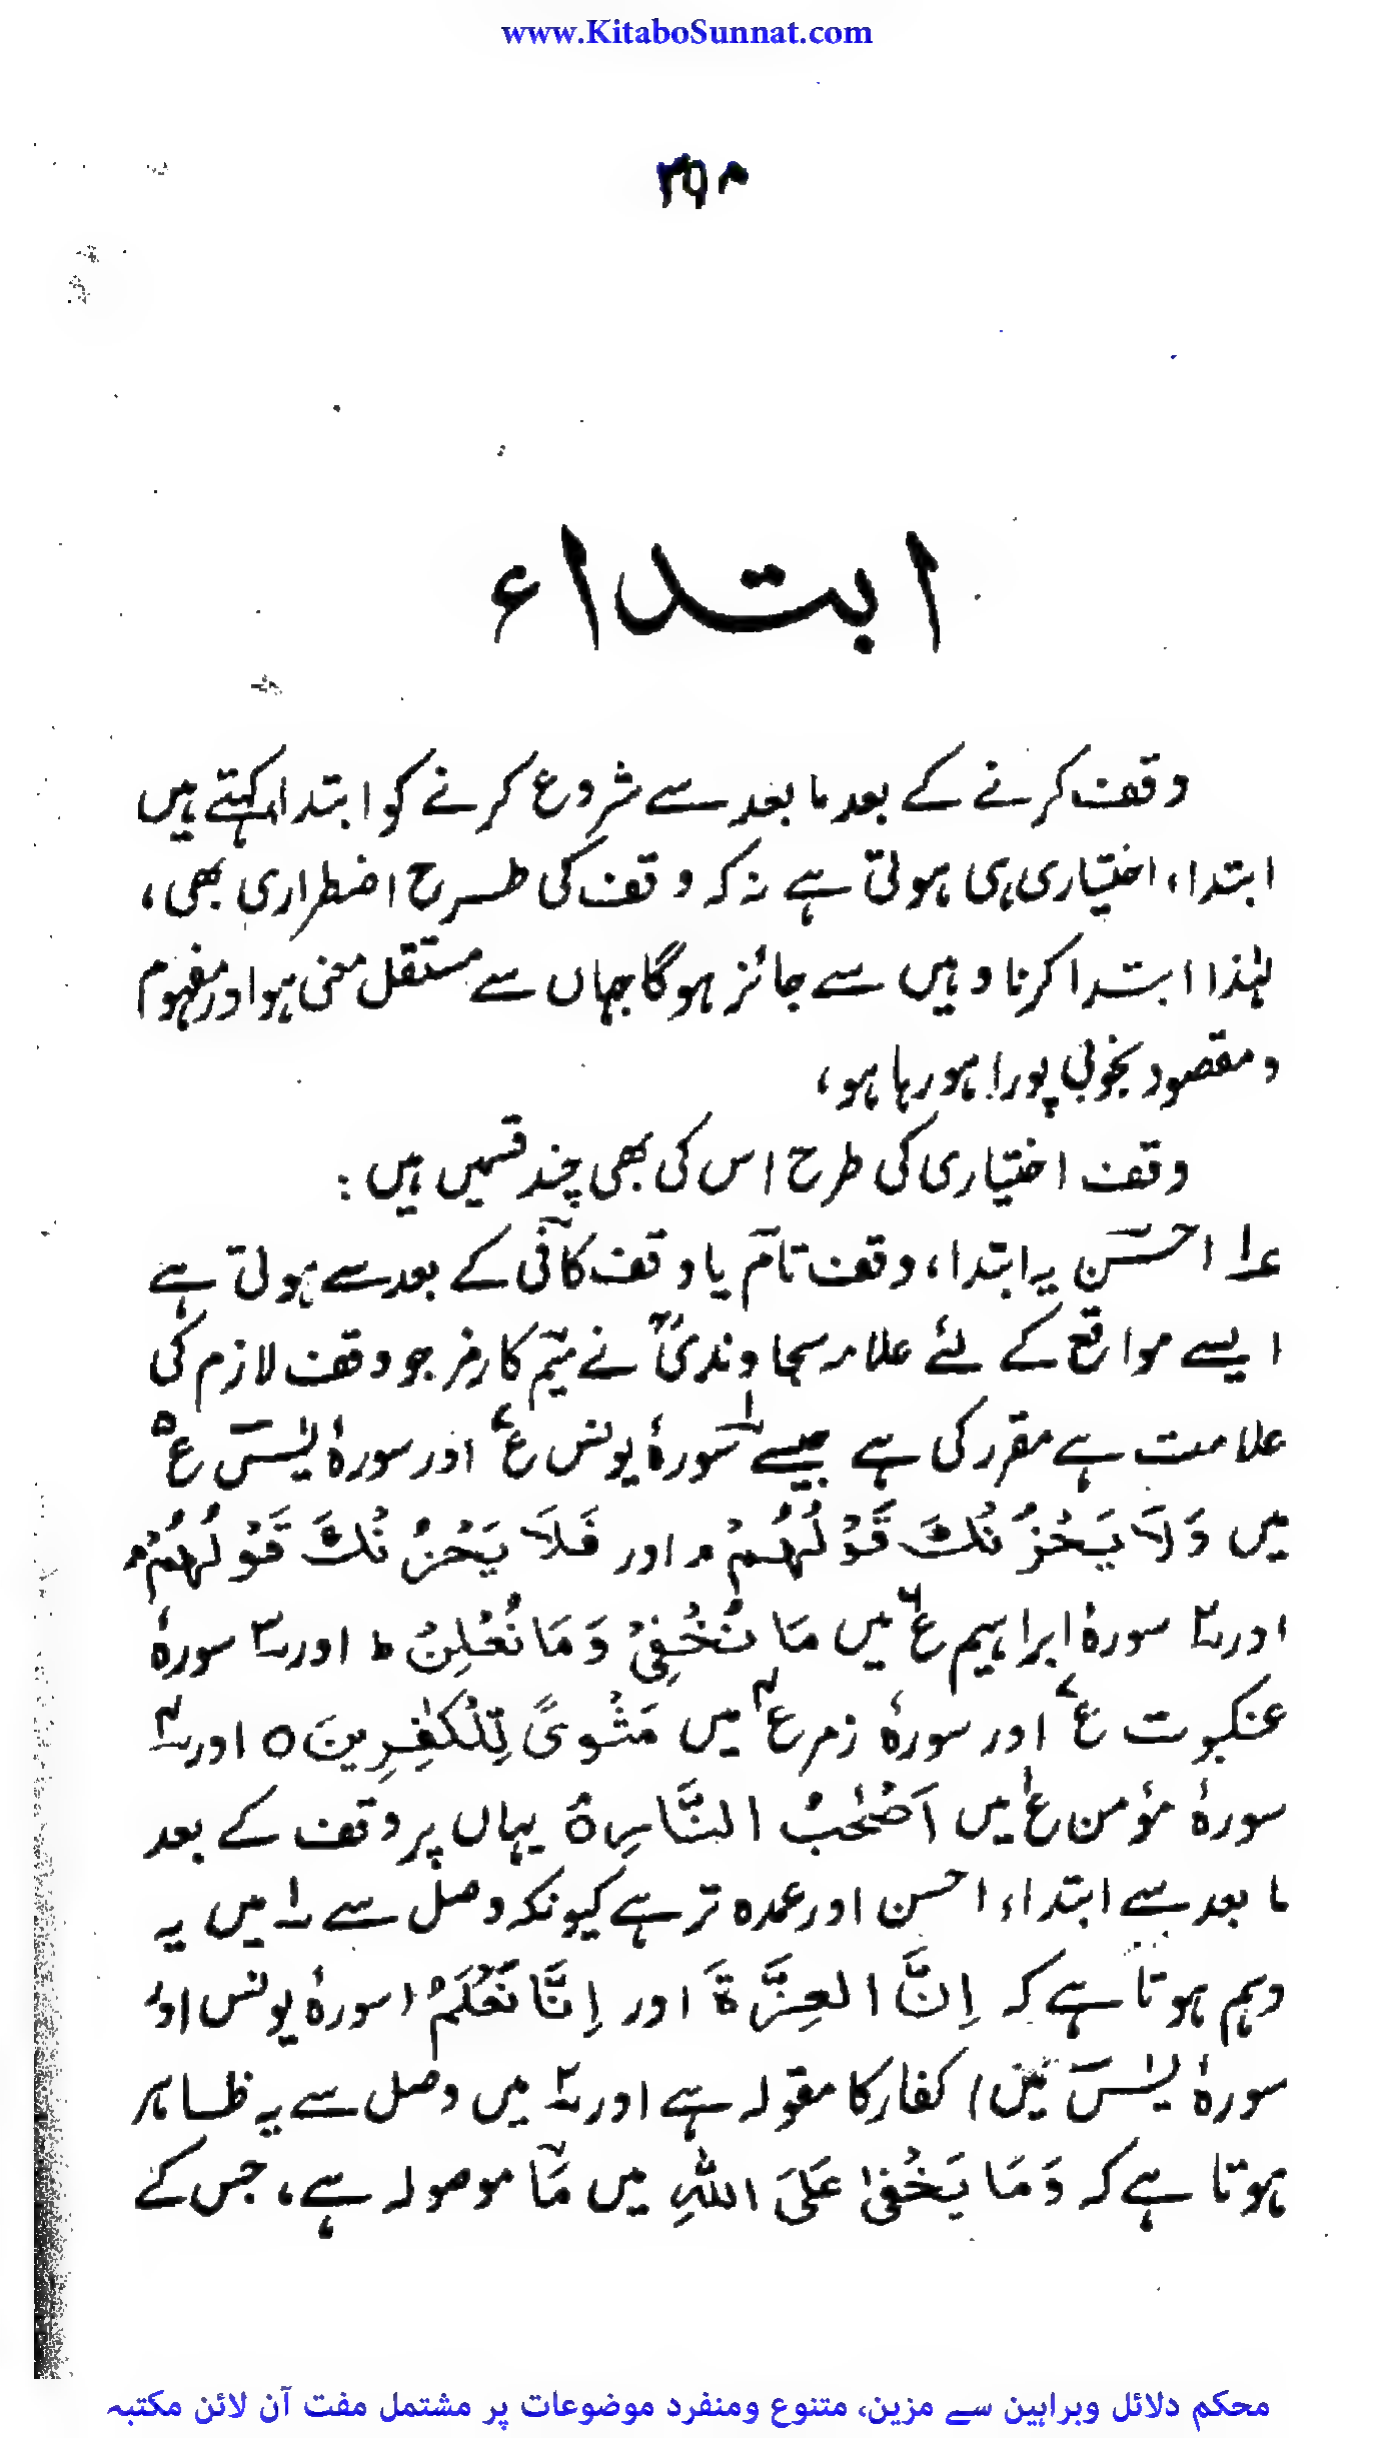 www.KitaboSunnat.com
۳۵۸
ابتداء
وقف کرنے کے بعد ما بعد سے شروع کرنے کو ابتداء کہتے ہیں
ابتداء، اختیاری ہی ہوتی ہے نہ کہ وقف کی طرح اضطراری بھی،
لہٰذا ابتدا کرنا وہیں سے جائز ہوگا جہاں سے مستقل معنی ہو اور مفہوم
و مقصود بخوبی پورا ہو رہا ہو،
وقف اختیاری کی طرح اس کی بھی چند قسمیں ہیں :
۱ احسن یہ ابتدا، وقف تام یا وقف کافی کے بعد سے ہوتی ہے
ایسے مواقع کے لئے علامہ سجاوندیؒ نے میم کا رمز جو وقف لازم کی
علامت ہے مقرر کی ہے جیسے ۱ سورۂ یونس ع۷ اور سورۂ یٰسٓ ع۵
میں وَلَا يَحْزُنْكَ قَوْلُهُمْ م اور فَلَا يَحْزُنْكَ قَوْلُهُمْ م
اور ۲ سورۂ ابراہیم ع۶ میں مَا نُخْفِيْ وَمَا نُعْلِنُ ط اور ۳ سورۂ
عنکبوت ع۷ اور سورۂ زمر ع۴ میں مَثْوًى لِّلْكٰفِرِينَ ۝ اور ۴
سورۂ مؤمن ع۱ میں اَصْحٰبُ النَّارِ ۝ یہاں پر وقف کے بعد
ما بعد سے ابتداء احسن اور عمدہ تر ہے کیونکہ وصل سے ۱ میں یہ
وہم ہوتا ہے کہ اِنَّ الْعِزَّةَ اور اِنَّا نَعْلَمُ (سورۂ یونس اور
سورۂ یٰسٓ میں) کفار کا مقولہ ہے اور ۲ میں وصل سے یہ ظاہر
ہوتا ہے کہ وَمَا يَخْفٰى عَلَى اللّٰهِ میں مَا موصولہ ہے، جس کے
محکم دلائل وبراہین سے مزین، متنوع ومنفرد موضوعات پر مشتمل مفت آن لائن مکتبہ